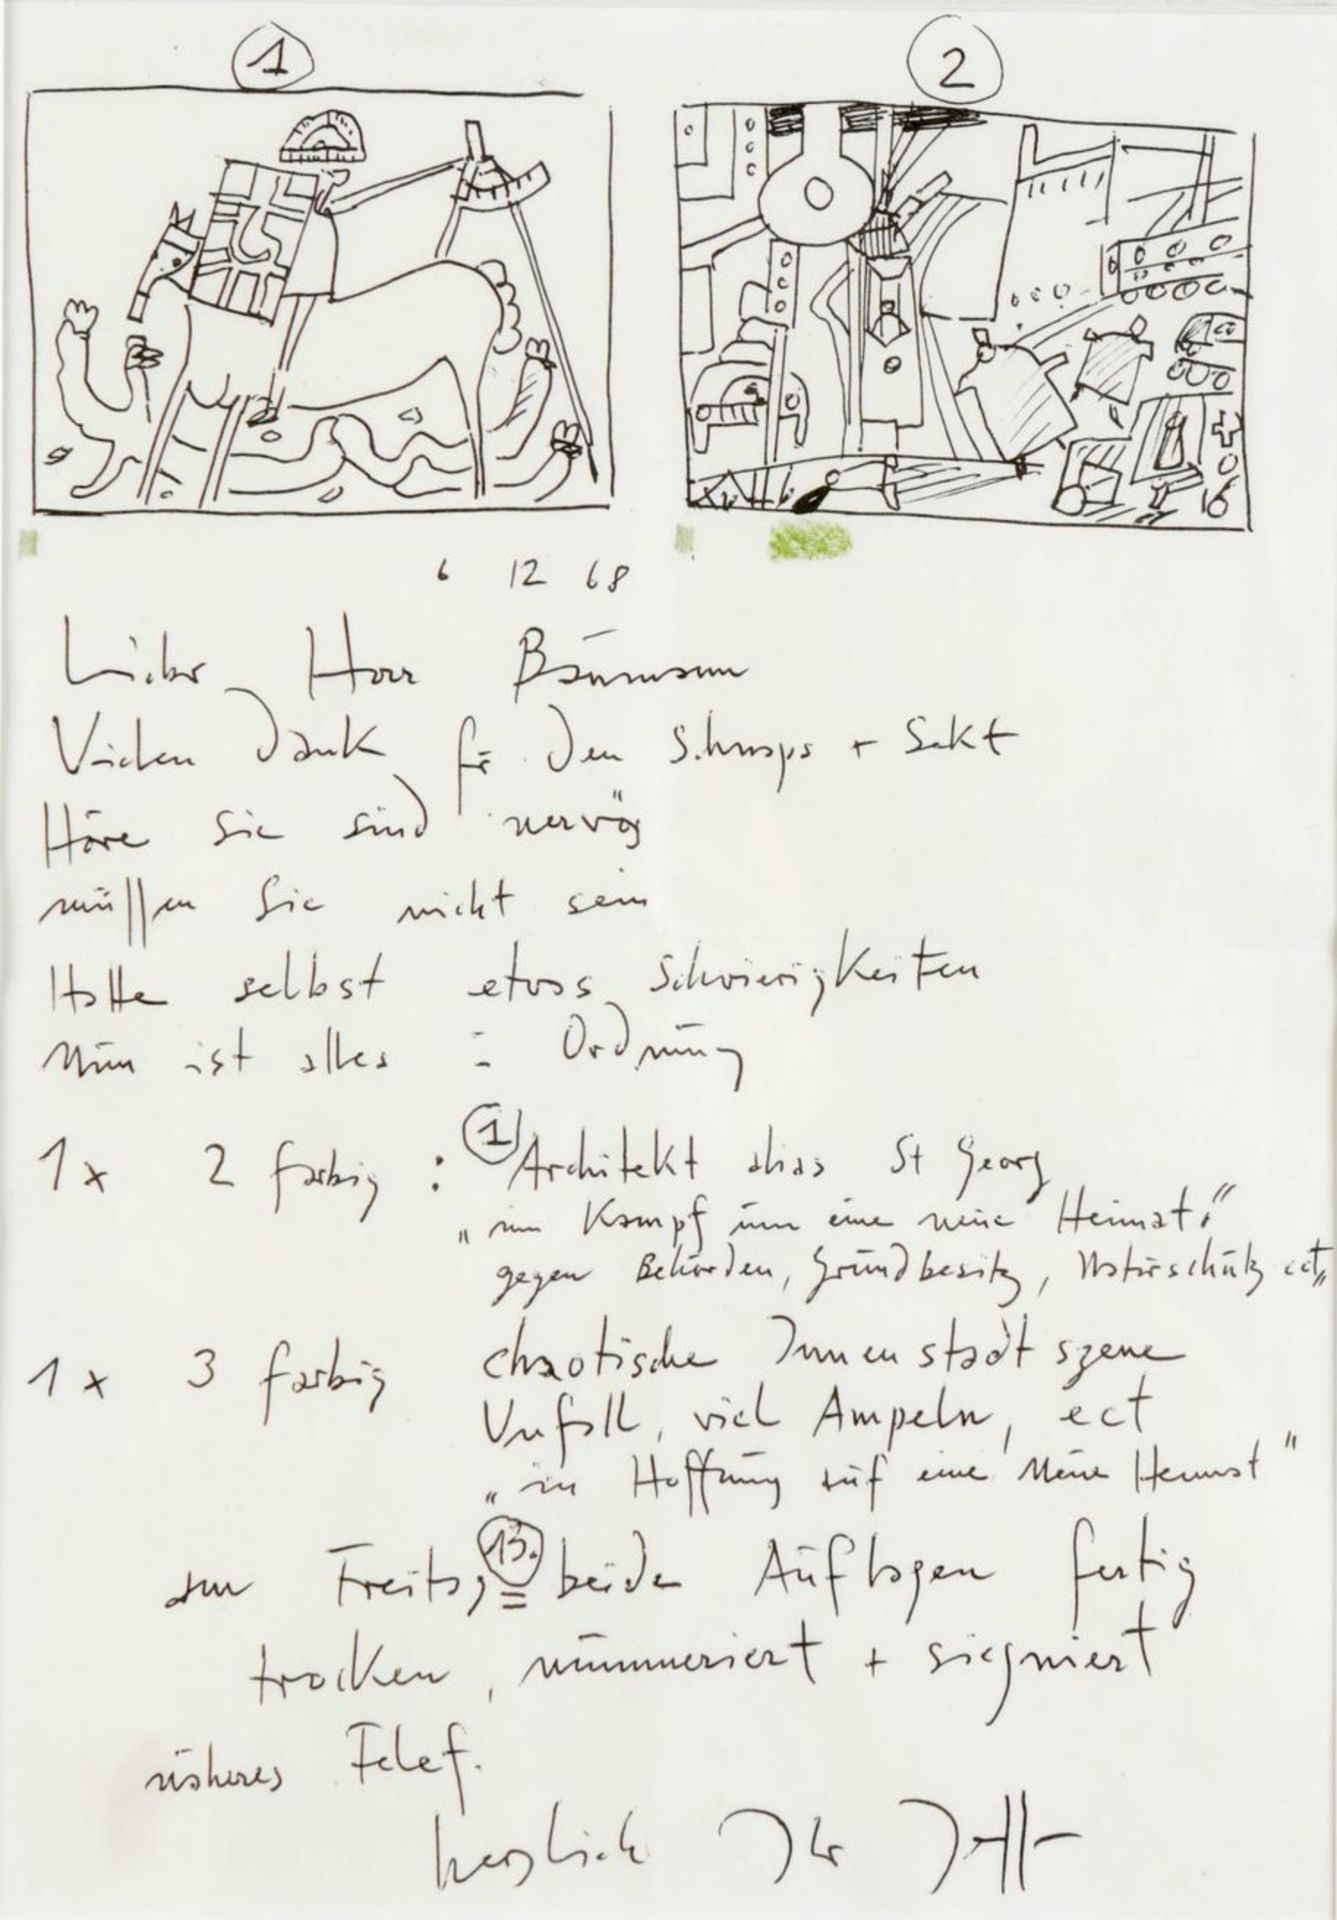 1
2
16
6 12 68
Lieber Herr
Vielen Dank für den Schnaps + Sekt
Höre Sie sind nervös
müssen Sie nicht sein
Hatte selbst etwas Schwierigkeiten
Nun ist alles in Ordnung
1x 2 farbig : 1 Architekt alias St Georg
„im Kampf um eine neue Heimat"
gegen Behörden, Grundbesitz, Naturschutz ect„
1x 3 farbig chaotische Innenstadtszene
Unfall, viel Ampeln, ect
„in Hoffnung auf eine Neue Heimat"
am Freitag 13. beide Auflagen fertig
trocken, nummeriert + siegniert
näheres Telef.
herzlich Ihr